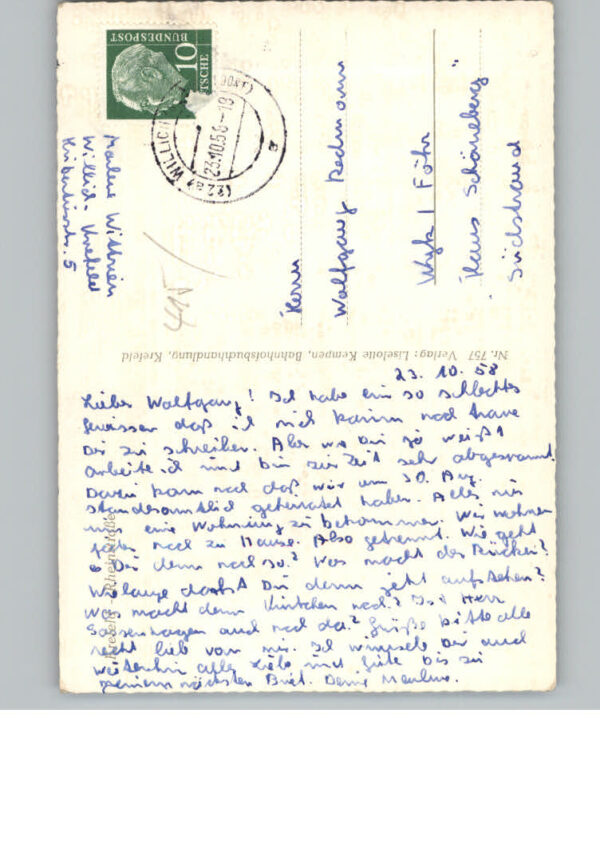 10
DEUTSCHE
BUNDESPOST
(22a) WILLICH
23.10.58-18
a
Marlene
Willich-Krefeld
5
415
Herrn
Wolfgang Redmann
Wyk / Föhr
"Haus Schöneberg"
Südstrand
Nr. 757 Verlag: Liselotte Kempen, Bahnhofsbuchhandlung, Krefeld
Krefeld, Rheinstraße
23. 10. 58
Lieber Wolfgang! Ich habe ein so schlechtes
Gewissen daß ich mich kaum noch traue
Dir zu schreiben. Aber wie Du ja weißt
arbeite ich und bin zur Zeit sehr abgespannt.
Dazu kam noch daß wir am 30. Aug.
standesamtlich geheiratet haben. Alles nur
um eine Wohnung zu bekommen. Wir wohnen
jeder noch zu Hause. Also getrennt. Wie geht
es Dir denn noch so? Was macht der Rücken?
Wie lange darfst Du denn jetzt aufstehen?
Was macht denn noch? Ist Herr
auch noch da? Grüße bitte alle
recht lieb von mir. Ich wünsche Dir auch
weiterhin alles Liebe und Gute bis zu
meinem nächsten Brief. Deine Marlene.